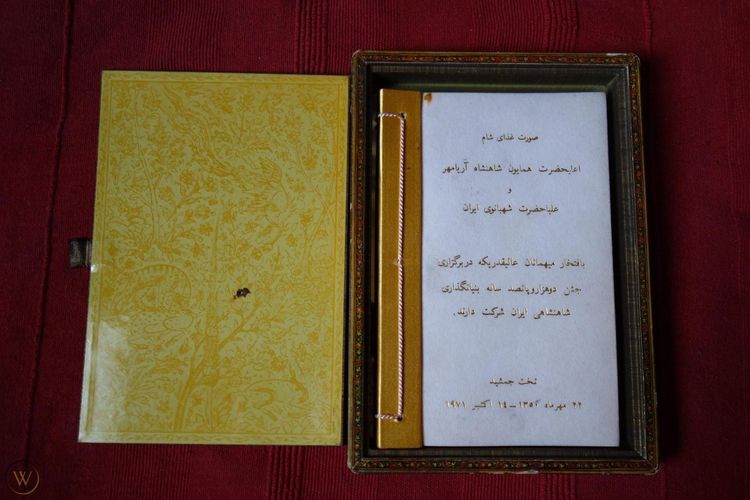 صورت غذای شام
اعلیحضرت همایون شاهنشاه آریامهر
و
علیاحضرت شهبانوی ایران
بافتخار میهمانان عالیقدریکه در برگزاری
جشن دوهزار و پانصد ساله بنیانگذاری
شاهنشاهی ایران شرکت دارند.
تخت جمشید
۲۲ مهرماه ۱۳۵۰ – ۱۴ اکتبر ۱۹۷۱
W